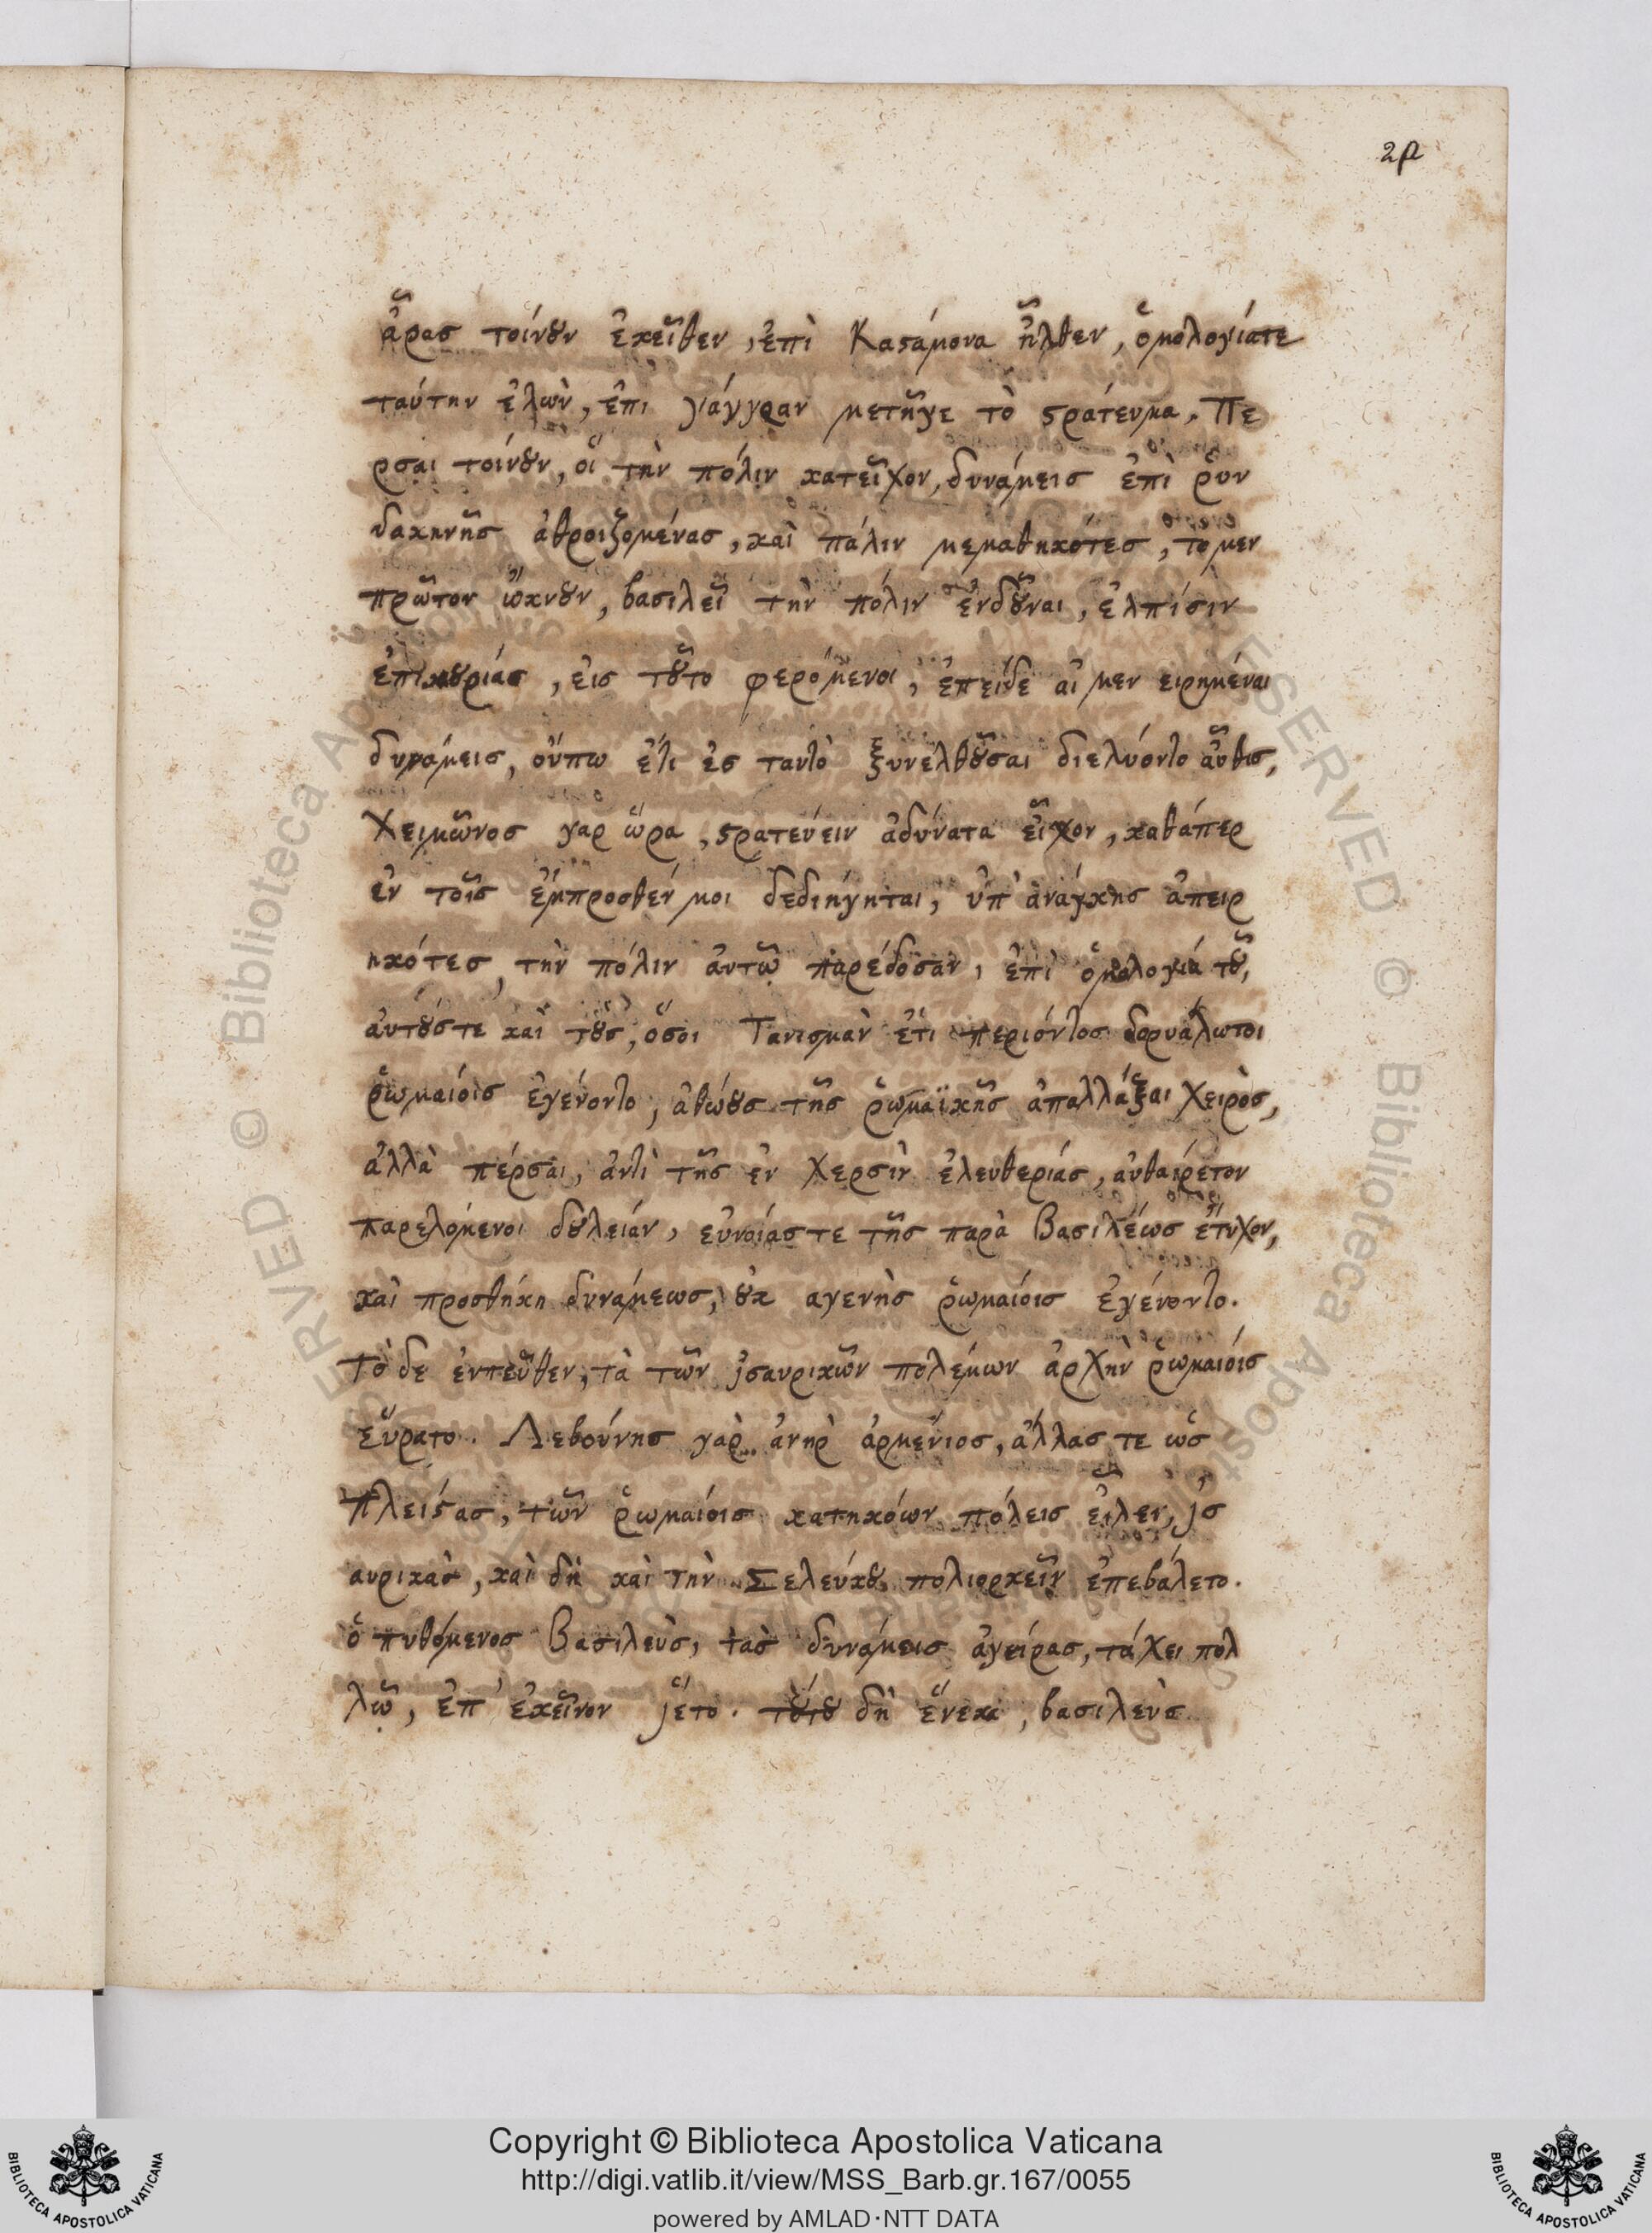 2β
ἄ̓ρας τοίνυν ἐκεῖθεν, ἐπὶ Κασάμονα ἦλθεν, ὁμολογίατε
ταύτην ἑλὼν, ἐπι γάγγραν μετῆγε τὸ ϛράτευμα. Πε
ρσαι τοίνυν, οἳ τὴν πόλιν κατεῖχον, δυνάμεις ἐπὶ ῥυν
δακηνῆς ἀθροιζομένας, καὶ πάλιν μεμαθηκότες, τομεν
πρῶτον ὤκνȣν, βασιλεῖ τὴν πόλιν ἐνδȣ͂ναι, ἐλπίσιν
ἐπικȣρίας, εις τȣ͂το φερόμενοι, ἐπείδε αἱ μεν ειρημέναι
δυνάμεις, οὔπω ἔτι ἐς ταυτὸ ξυνελθȣ͂σαι διελύοντο αὖθις,
Χειμῶνος γαρ ὥρα, ϛρατεύειν ἀδύνατα εἶχον, καθάπερ
ἐν τοῖς ἔμπροσθέν μοι δεδιήγηται, ὑπ' ἀνάγκης ἀπειρ
ηκότες, τὴν πόλιν ἀυτῶ παρέδοσαν, ἐπὶ ὁμολογία τȣ͂,
ἀυτȣ́ςτε καὶ τȣ̀ς, ὅσοι Τανισμὰν ἔτι περιόντος δορυάλωτοι
ῥωμαίοις ἐγένοντο, ἀθώȣς τῆς ῥωμαϊκῆς ἀπαλλάξαι Χειρὸς,
ἀλλὰ πέρσαι, ἀντὶ τῆς ἐν Χερσὶν ἐλευθερίας, ἀυθαίρετον
παρελόμενοι δȣλείαν, ευνοίας τε τῆς παρὰ Βασιλέως ἔτυχον,
και προσθήκη δυνάμεως, ȣκ αγενὴς ῥωμαίοις ἐγένοντο.
τὸ δε ἐντεῦθεν, τὰ τῶν ἰσαυρικῶν πολέμων ἀρχὴν ῥωμαιόις
εὕρατο. Λεβούνης γαρ ἀνηρ̀ ἀρμένιος, ἄλλας τε ὡς
πλείϛας, τῶν ῥωμαίοις κατηκόων πόλεις εἷλεν, ἰσ
αυρικὰς, καὶ δὴ καὶ τὴν Σελεύκȣ πολιορκεῖν ἐπεβάλετο.
ὃ πυθόμενος Βασιλεὺς, τὰς δυνάμεις ἀγείρας, τάχει πολ
λῷ, ἐπ' ἐκεῖνον ἵετο. τȣ́τȣ δὴ ἕνεκα, βασιλεὺς
Copyright © Biblioteca Apostolica Vaticana
http://digi.vatlib.it/view/MSS_Barb.gr.167/0055
powered by AMLAD·NTT DATA